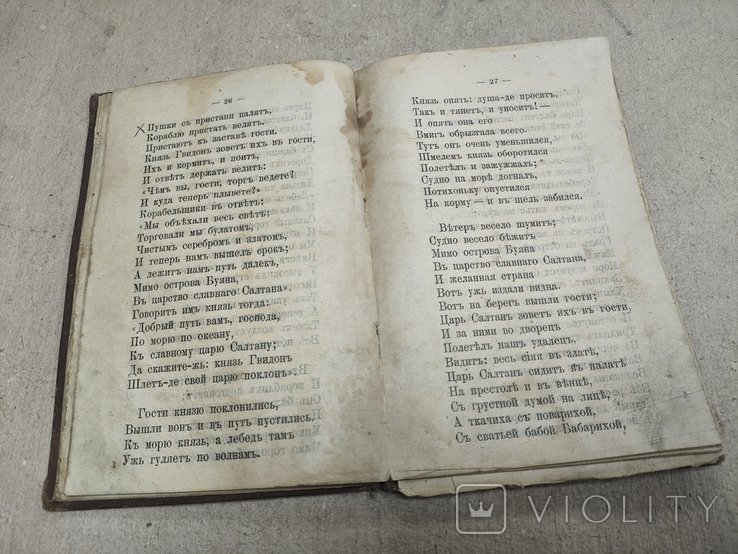 — 26 —
Пушки съ пристани палятъ,
Кораблю пристать велятъ.
Пристаютъ къ заставѣ гости.
Князь Гвидонъ зоветъ ихъ въ гости,
Ихъ и кормитъ, и поитъ,
И отвѣтъ держать велитъ:
«Чѣмъ вы, гости, торгъ ведете?
И куда теперь плывете?»
Корабельщики въ отвѣтъ:
«Мы объѣхали весь свѣтъ;
Торговали мы булатомъ,
Чистымъ серебромъ и златомъ,
И теперь намъ вышелъ срокъ;
А лежитъ намъ путь далекъ,
Мимо острова Буяна,
Въ царство славнаго Салтана».
Говоритъ имъ князь тогда:
«Добрый путь вамъ, господа,
По морю по океану,
Къ славному царю Салтану;
Да скажите-жъ: князь Гвидонъ
Шлетъ-де свой царю поклонъ».
Гости князю поклонились,
Вышли вонъ и въ путь пустились.
Къ морю князь, а лебедь тамъ
Ужь гуляетъ по волнамъ.
— 27 —
Князь опять: душа-де проситъ,
Такъ и тянетъ, и уноситъ! —
И опять она его
Вмигъ обрызгала всего.
Тутъ онъ очень уменьшился,
Шмелемъ князь оборотился,
Полетѣлъ и зажужжалъ;
Судно на морѣ догналъ,
Потихоньку опустился
На корму — и въ щель забился.
Вѣтеръ весело шумитъ;
Судно весело бѣжитъ
Мимо острова Буяна
Въ царство славнаго Салтана,
И желанная страна
Вотъ ужь издали видна.
Вотъ на берегъ вышли гости;
Царь Салтанъ зоветъ ихъ въ гости,
И за ними во дворецъ
Полетѣлъ нашъ удалецъ.
Видитъ: весь сіяя въ златѣ,
Царь Салтанъ сидитъ въ палатѣ
На престолѣ и въ вѣнцѣ,
Съ грустной думой на лицѣ,
А ткачиха съ поварихой,
Съ сватьей бабой Бабарихой,
VIOLITY